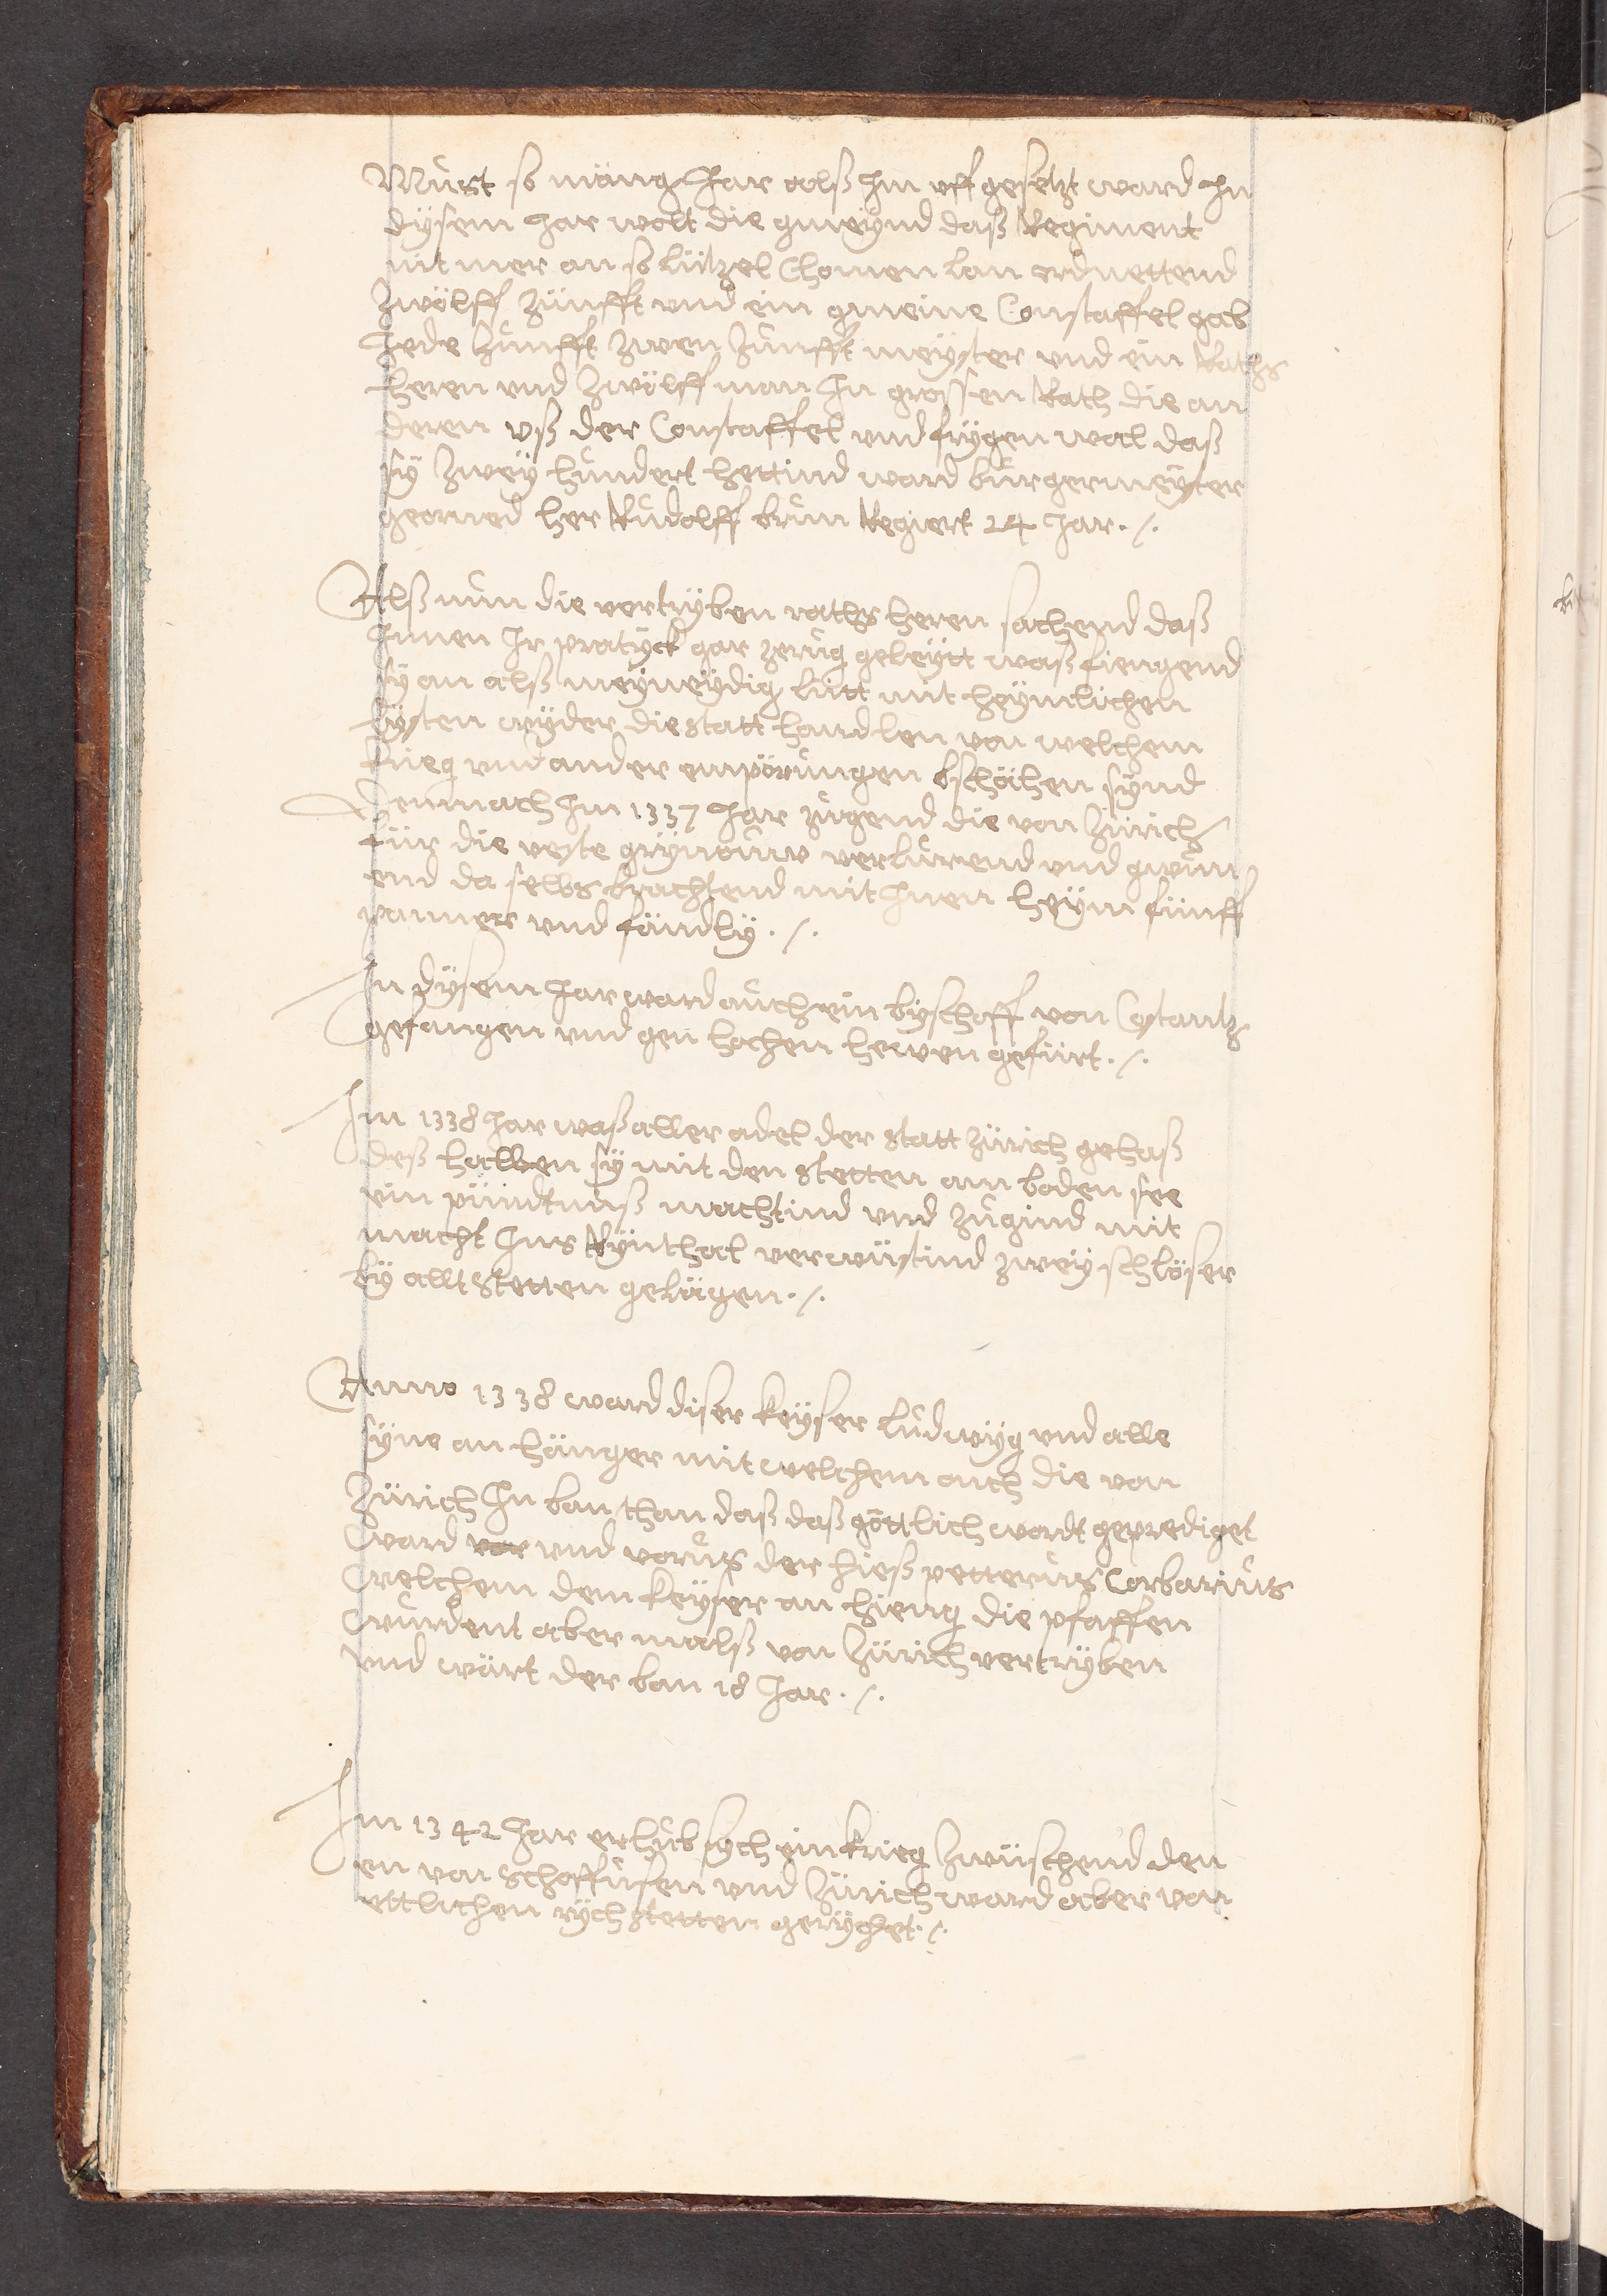 Must so mäng Jar alß im uff gesetzt ward In
dysem Jar wolt die gmeynd daß Regiment
nit mer an so lützel Chomen lan ordnettend
zwölff zünfft und ein gmeine Constaffel gab
Jede zunfft zwen zunfft meyster und ein Raths
heren und zwölff man In grossen Rath die an
deren uß der Constaffel und frygen wal daß
sÿ zweÿ hundert hettind ward burgermeyster
georned her Rudolff brun Regiert 24 Jar ./.
Alß nun die vertryben raths heren sachend daß
Innen Ir pratyck gar zerug geleytt waß fiengend
sÿ an alß meyneydig lütt mit heymlichen
lysten wyder die statt handlen von welchem
krieg und ander empörungen bschähen synd
Demnach Im 1337 Jar zugend die von Zürich
für die veste grynouw verlurend und gwun
end da selbs brachtend mit Inen heym fünff
panner und fändlÿ ./.
In dysem Jar ward auch ein byschoff von Costantz
gefangen und gen hochen hewen gefürt ./.
Im 1338 Jar waß aller adel der statt Zürich gehaß
deß halben sÿ mit den stetten am boden see
ein pündtnuß machtind und zugind mit
macht Ins Rynthal verwüstind zweÿ schlöser
bÿ alltstetten gelägen ./.
Anno 1338 ward diser keyser ludwyg und alle
syne an hänger mit welchem auch die von
Zürich In ban than daß daß göttlich wordt geprediget
ward vor und voruß der hieß petterus Corbarius
welchem dem keyser an hieng die pfaffen
wurdent aber malß von Zürich vertryben
und wärt der ban 18 Jar ./.
Im 1342 Jar erhub sych ein krieg zwüschend den
en von Schaffusen und Zürich ward aber von
ettlichen rychstetten gerychet ./.